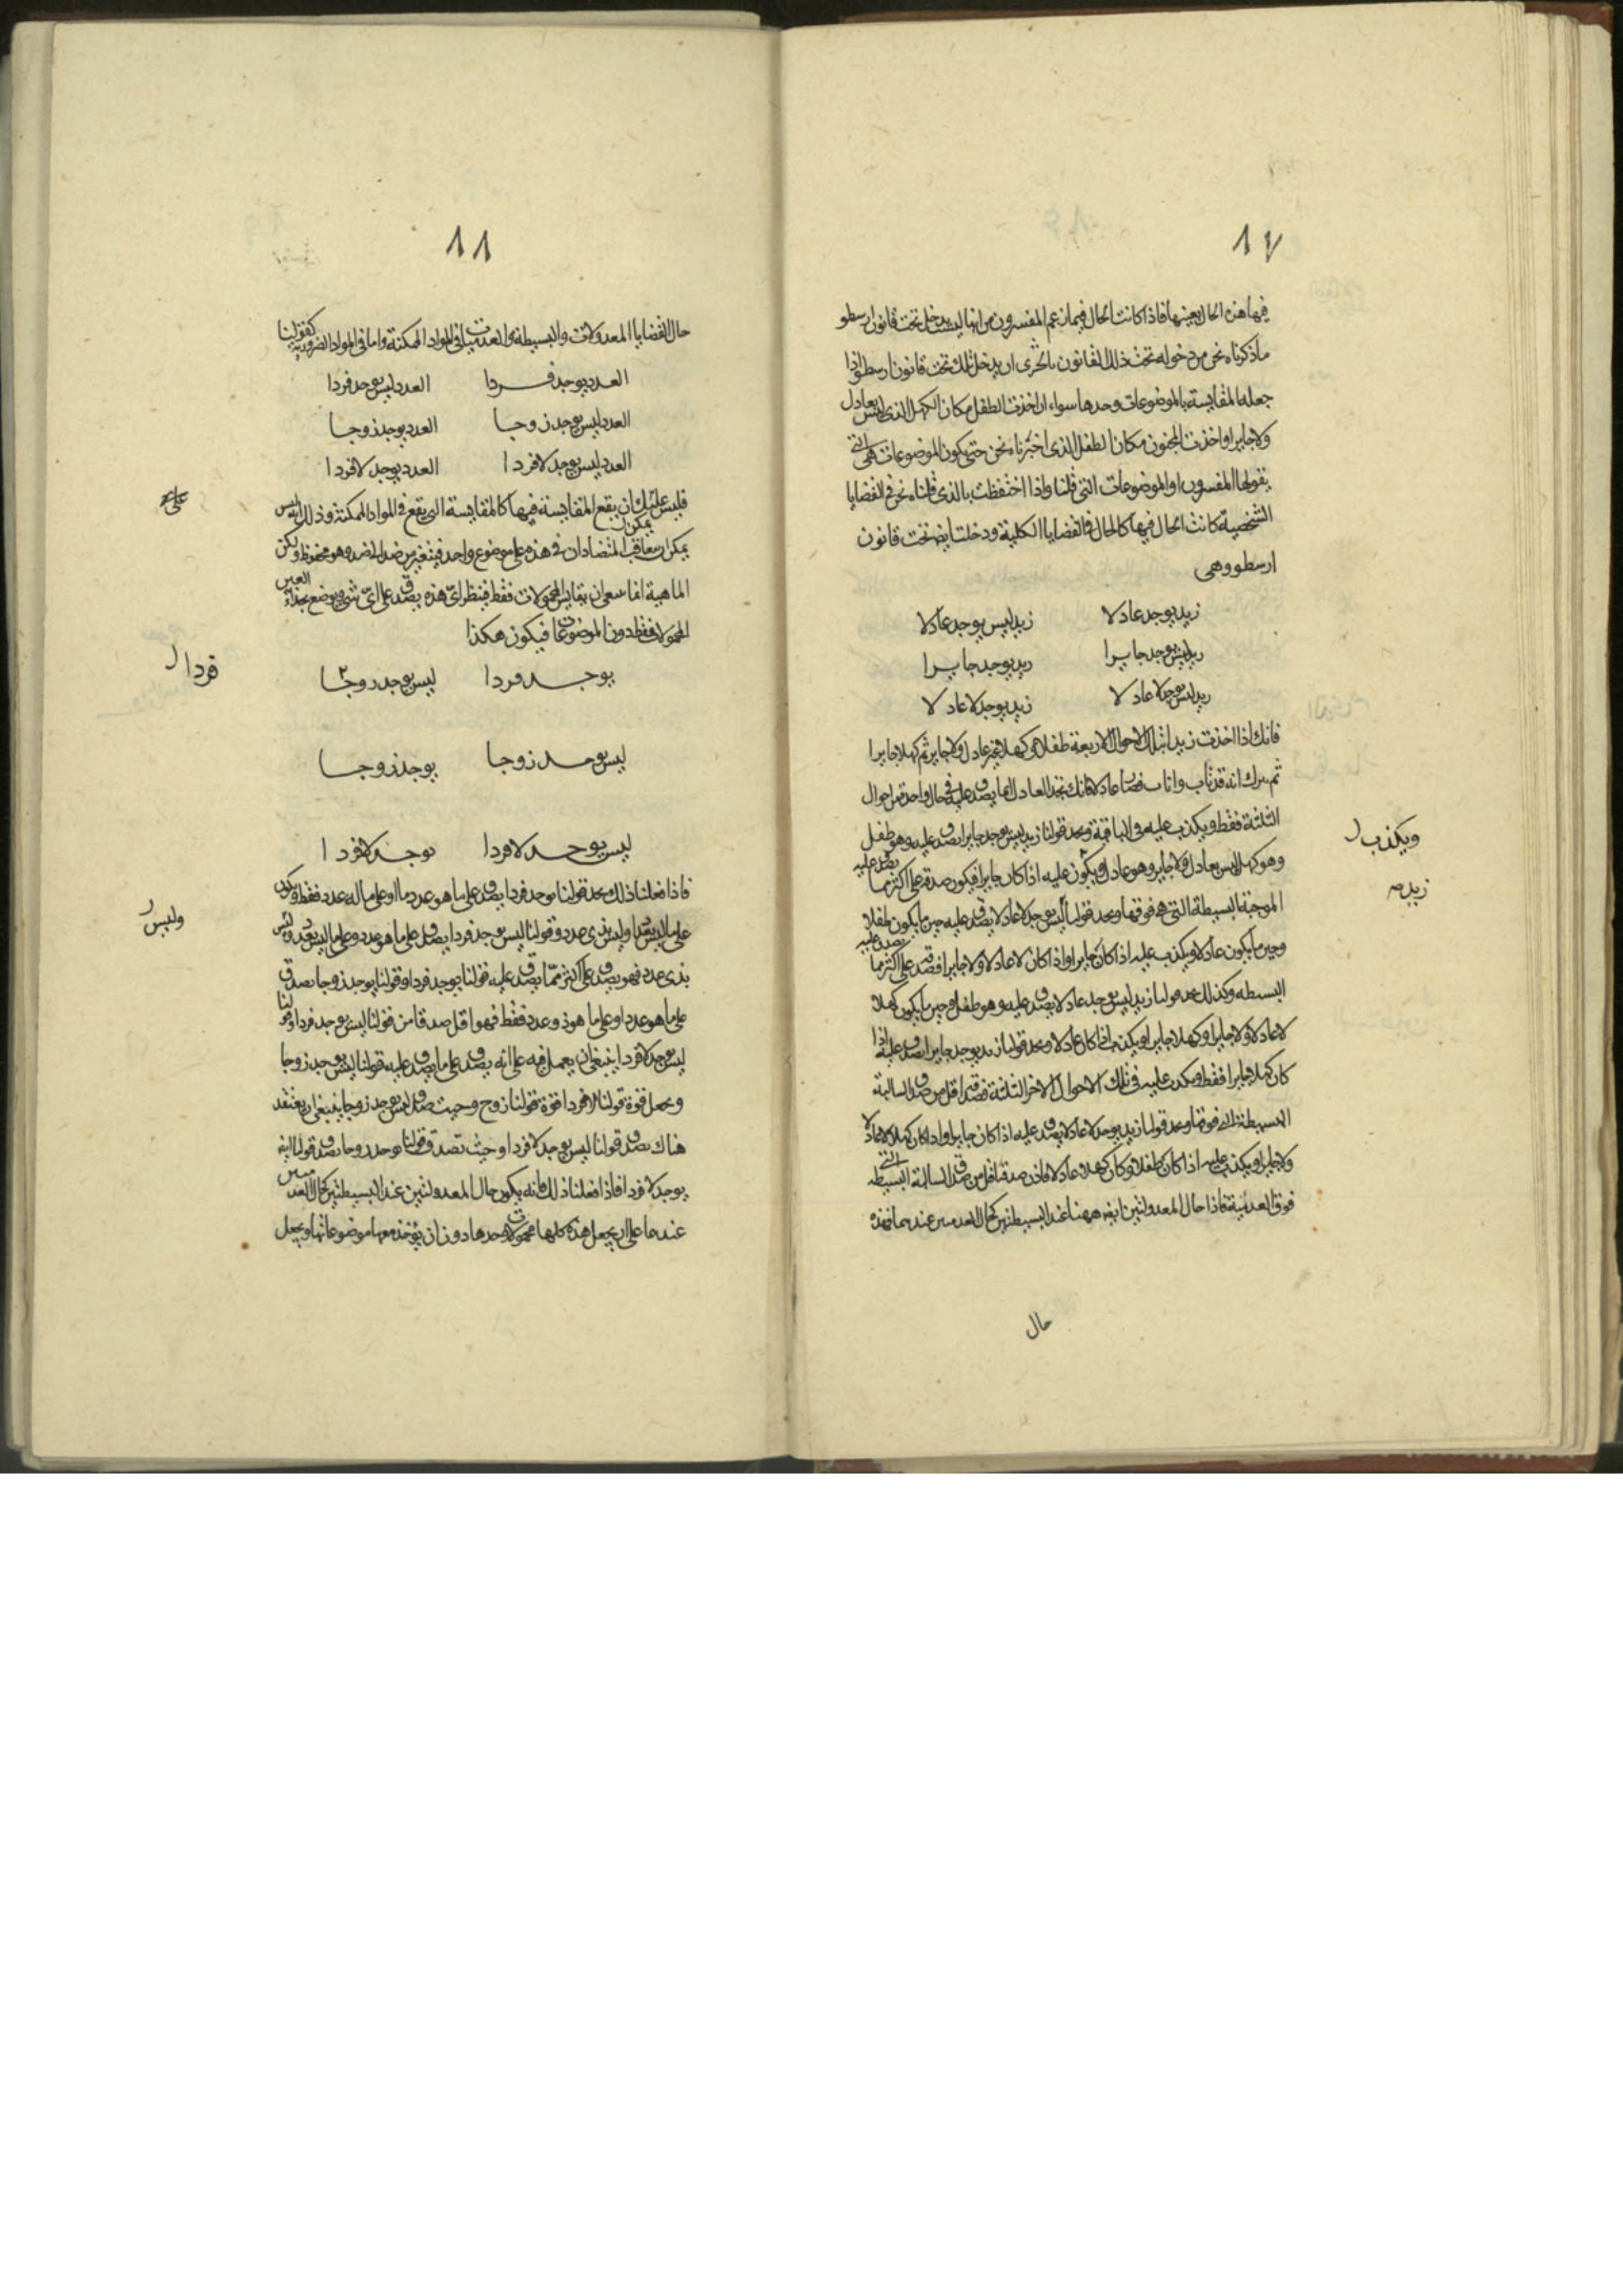 ٨٧
فيها هذه الحال بعينها فاذا كانت الحال فيما زعم المفسرون من انها ليست يدخل تحت قانون ارسطو
ما ذكرناه نحن من دخوله تحت ذلك القانون بالحرى ان يدخل تلك تحت قانون ارسطو اذا
جعل المقايسة بالموضوعات وحدها سواء ان اخذت الطفل مكان الكهل الذى ليس بعادل
ولا جاير او اخذت المجنون مكان الطفل الذى اخبرناه نحن حتى يكون الموضوعات هى التى
يقولها المفسرون او الموضوعات التى قلنا واذا احتفظت بالذى قلناه نحن فى القضايا
الشخصية كانت الحال فيها كالحال فى القضايا الكلية ودخلت ايضا تحت قانون
ارسطو وهى
زيد يوجد عادلا زيد ليس يوجد عادلا
زيد ليس يوجد جايرا زيد يوجد جايرا
زيد ليس يوجد لا عادلا زيد يوجد لا عادلا
فانك اذا اخذت زيدا بتلك الاحوال الاربعة طفلا ثم كهلا غير عادل ولا جاير ثم كهلا جايرا
ثم انه قد تاب واناب فصار عادلا فانك تجد العادل انما يصدق عليه فى حال واحدة من احوال
الثلثة فقط ويكذب عليه فى الباقية وتجد قولنا زيد ليس يوجد جايرا يصدق عليه وهو طفل
وهو كهل ليس بعادل ولا جاير وهو عادل ويكون عليه اذا كان جايرا فيكون صدقه على اكثر مما يصدق عليه
ويكذب
زيد صه
الموجبة البسيطة التى هى فوقها وتجد قولنا ليس يوجد لا عادلا يصدق عليه حين ما يكون طفلا
وحين ما يكون عادلا ويكذب عليه اذا كان جايرا واذا كان لا عادلا ولا جايرا فصدقه على اكثر مما يصدق عليه
البسيطة وكذلك تجد قولنا زيد ليس يوجد عادلا يصدق عليه وهو طفل وحين ما يكون كهلا
لا عادلا ولا جايرا وكهلا جايرا ويكذب اذا كان عادلا وتجد قولنا زيد يوجد جايرا يصدق عليه اذا
كان كهلا جايرا فقط ويكذب عليه فى تلك الاحوال الاخر الثلثة فصدقه اقل من صدق السالبة
البسيطة التى فوقها وتجد قولنا زيد يوجد لا عادلا يصدق عليه اذا كان جايرا واذا كان كهلا لا عادلا
ولا جايرا ويكذب عليه اذا كان طفلا وكان كهلا وعادلا فاذن صدقه اقل من صدق السالبة البسيطة التى
فوق العدمية فاذا حال المعدولتين ايضا ههنا عند البسيطتين كحال العدميتين عندهما فهذه
حال
٨٨
حال القضايا المعدولات والبسيطة والعدميات فى المواد الممكنة واما فى المواد الضرورية كقولنا
العدد يوجد فردا العدد ليس يوجد فردا
العدد ليس يوجد زوجا العدد يوجد زوجا
العدد ليس يوجد لا فردا العدد يوجد لا فردا
فليس عليك ان يقع المقايسة فيها كالمقايسة التى يقع فى المواد الممكنة وذلك انه ليس
يمكن ان يتعاقب المتضادان فى هذه على موضوع واحد فيتغير من ضد الى ضد وهو محفوظ ولكن
الماهية انما ينبغى ان يقايس المحمولات فقط فينظر اى هذه يصدق على اى شى ويوضع بحذاء
المحمولات فقط دون الموضوعات فيكون هكذا
يوجد فردا ليس يوجد زوجا
فردا
ليس يوجد زوجا يوجد زوجا
ليس يوجد لا فردا يوجد لا فردا
فاذا فعلنا ذلك تجد قولنا يوجد فردا يصدق على ما هو عدد ما او على ما له عدد فقط ويكون
على ما ليس بعدد او ليس بذى عدد وقولنا ليس يوجد فردا يصدق على ما هو عدد وعلى ما ليس بعدد وليس
وليس
بذى عدد فهو يصدق على اكثر مما يصدق عليه قولنا يوجد فردا وقولنا يوجد زوجا يصدق
على ما هو عدد او على ما هو ذو عدد فقط فهو اقل صدقا من قولنا ليس يوجد فردا وقولنا
ليس يوجد لا فردا ينبغى ان يعمل فيه على انه يصدق على ما يصدق عليه قولنا ليس يوجد زوجا
ويجعل قوة قولنا لا فردا قوة قولنا زوج وحيث صدق ليس يوجد زوجا ينبغى ان يعتقد
هناك يصدق قولنا ليس يوجد لا فردا وحيث يصدق قولنا يوجد زوجا يصدق قولنا انه
يوجد لا فردا فاذا فعلنا ذلك فانه يكون حال المعدولتين عند البسيطتين كحال العدميتين
عندهما على ان يجعل هذه كلها محمولات وحدها دون ان يؤخذ معها موضوعاتها ويجعل